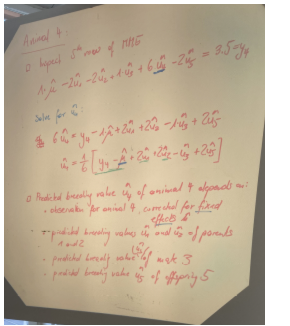 Animal 4:
① Inspect 5th row of MME
1·μ̂ - 2û₁ - 2û₂ + 1·û₃ + 6û₄ - 2û₅ = 3.5 = y₄
Solve for û₄:
6û₄ = y₄ - 1μ̂ + 2û₁ + 2û₂ - 1·û₃ + 2û₅
û₄ = 1/6 [y₄ - μ̂ + 2û₁ + 2û₂ - û₃ + 2û₅]
① Predicted breeding value û₄ of animal 4 depends on:
· observation for animal 4, corrected for fixed
effects
- predicted breeding values û₁ and û₂ of parents
1 and 2
· predicted breeding value (û₃) of mate 3
· predicted breeding value û₅ of offspring 5